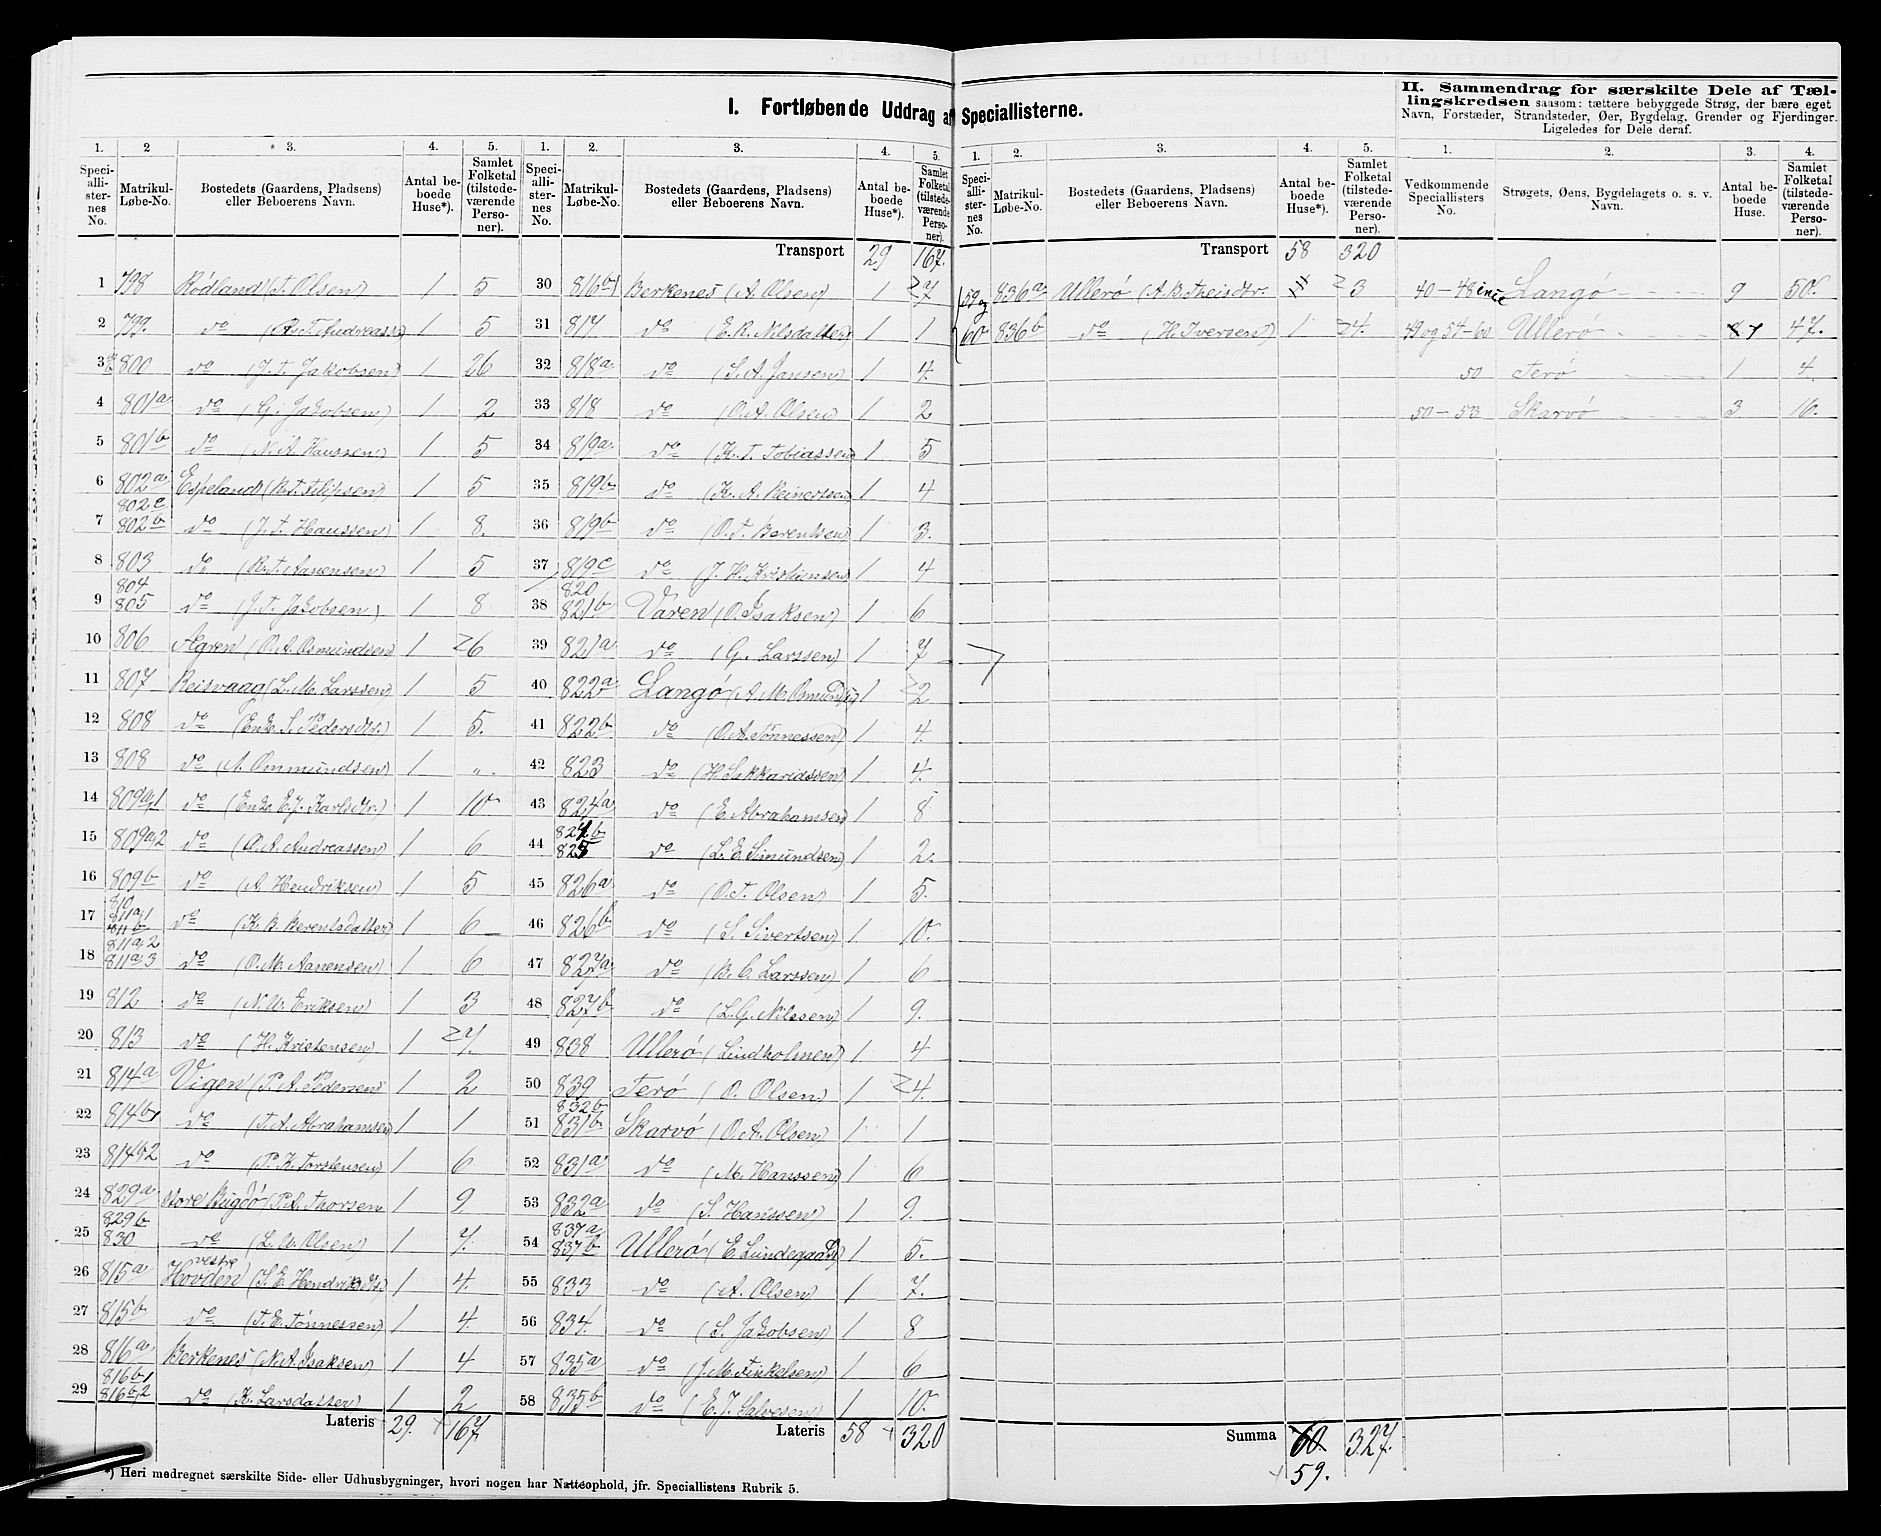 I. Fortløbende Uddrag af Speciallisterne.
II. Sammendrag for særskilte Dele af Tæl-
lingskredsen saasom: tættere bebyggede Strøg, der bære eget
Navn, Forstæder, Strandsteder, Øer, Bygdelag, Grender og Fjerdinger.
Ligeledes for Dele deraf.
1. 2 3. 4. 5.
Speciallisternes No. Matrikul-Løbe-No. Bostedets (Gaardens, Pladsens) eller Beboerens Navn. Antal beboede Huse*). Samlet Folketal (tilstedeværende Personer).
1 798 Rödland (T. Olsen) 1 5
2 799 do 1 5
3 800 do (J. T. Jakobsen) 1 26
4 801a do (G. Jakobsen) 1 2
5 801b do (N. A. Hanssen) 1 5
6 802a Espeland 1 5
802c
7 802b do (J. T. Hanssen) 1 8.
8 803 do 1 5
804
9 805 do (J. T. Jakobsen) 1 8
10 806 Agren (O. A. Osmundsen) 1 6
11 807 Reisvaag (L. M. Larssen) 1 5
12 808 do (Enke S. Pedersdtr.) 1 5.
13 808 do (A. Ommundsen) 1 „.
14 809a,1 do (Enke E. J. Karlsdtr.) 1 10
15 809a,2 do (O. A. Andreassen) 1 6
16 809b do (A. Hendriksen) 1 5
810
17 811a,1 do (K. B. Berentsdatter) 1 6
811b
811a,2
18 811a,3 do (O. M. Aanensen) 1 6
19 812 do (N. W. Eriksen) 1 3
20 813 do (H. Kristensen) 1 7.
21 814a Vigen (P. A. Pedersen) 1 2
22 814b,1 do (T. A. Abrahamsen) 1 1
23 814b,2 do (P. K. Torstensen) 1 6
24 829a Store Bugdö (P. A. Thorsen 1 9
829b
25 830 do (L. W. Olsen) 1 7.
vestre
26 815a Hovden (S. E. Hendriksdtr.) 1 4.
27 815b do (T. E. Tönnessen) 1 4.
28 816a Berkenes (N. A. Isaksen) 1 4
816b,1
29 816b,2 do (K. Larsdatter) 1 2
Lateris 29. 167
*) Heri medregnet særskilte Side- eller Udhusbygninger, hvori nogen har Natteophold, jfr. Speciallistens Rubrik 5.
1. 2. 3. 4. 5.
Speciallisternes No. Matrikul-Løbe-No. Bostedets (Gaardens, Pladsens) eller Beboerens Navn. Antal beboede Huse*). Samlet Folketal (tilstedeværende Personer).
Transport 29 167.
30 816b,1 Berkenes (A. Olsen) 1 7
31 817 do (E. R. Nilsdatter) 1 1
32 818a do (S. A. Jansen) 1 4.
33 818 do (O. A. Olsen) 1 2
34 819a do (K. T. Tobiassen) 1 5
35 819b do (K. A. Reinertsen) 1 4
36 819b do (O. T. Berentsen) 1 3.
37 819c do (J. H. Kristiansen) 1 4
820
38 821b Varen (O. Isaksen) 1 6
39 821a do (G. Larssen) 1 7
40 822a Langö 1 2
41 822b do (O. A. Tönnessen) 1 4.
42 823 do (H. Sakkariassen) 1 4.
43 824a do (E. Abrahamsen) 1 8
824b
44 825 do (L. E. Simundsen) 1 2.
45 826a do (O. T. Olsen) 1 5.
46 826b do (S. Sivertsen) 1 10.
47 827a do (B. C. Larssen) 1 6
48 827b do (L. G. Nilssen) 1 9.
49 838 Ullerö (Lindholmen) 1 4
50 839 Terö (O. Olsen) 1 4.
832b
51 831b Skarvö (O. A. Olsen) 1 1
52 831a do (M. Hanssen) 1 6
53 832a do (S. Hanssen) 1 9.
837a
54 837b Ullerö (E. Lundegaard) 1 5.
55 833 do (A. Olsen) 1 7.
56 834 do (S. Jakobsen) 1 8
57 835a do (J. M. Tinkelsen) 1 6
58 835b do (E. J. Salvesen) 1 10.
Lateris 58 320
1. 2. 3. 4. 5.
Speciallisternes No. Matrikul-Løbe-No. Bostedets (Gaardens, Pladsens) eller Beboerens Navn. Antal beboede Huse*). Samlet Folketal (tilstedeværende Personer).
Transport 58 320
59 og 836a Ullerö (A. B. Theisdtr. 3
60 836b do (H. Iversen) 1 4.
Summa 60. 327.
59.
1. 2. 3. 4.
Vedkommende Speciallisters No. Strøgets, Øens, Bygdelagets o. s. v. Navn. Antal beboede Huse. Samlet Folketal (tilstedeværende Personer).
40-48 incl Langö 9 50.
49 og 54-60 Ullerö 7 47.
50 Terö 1 4.
50-53 Skarvö 3 16.